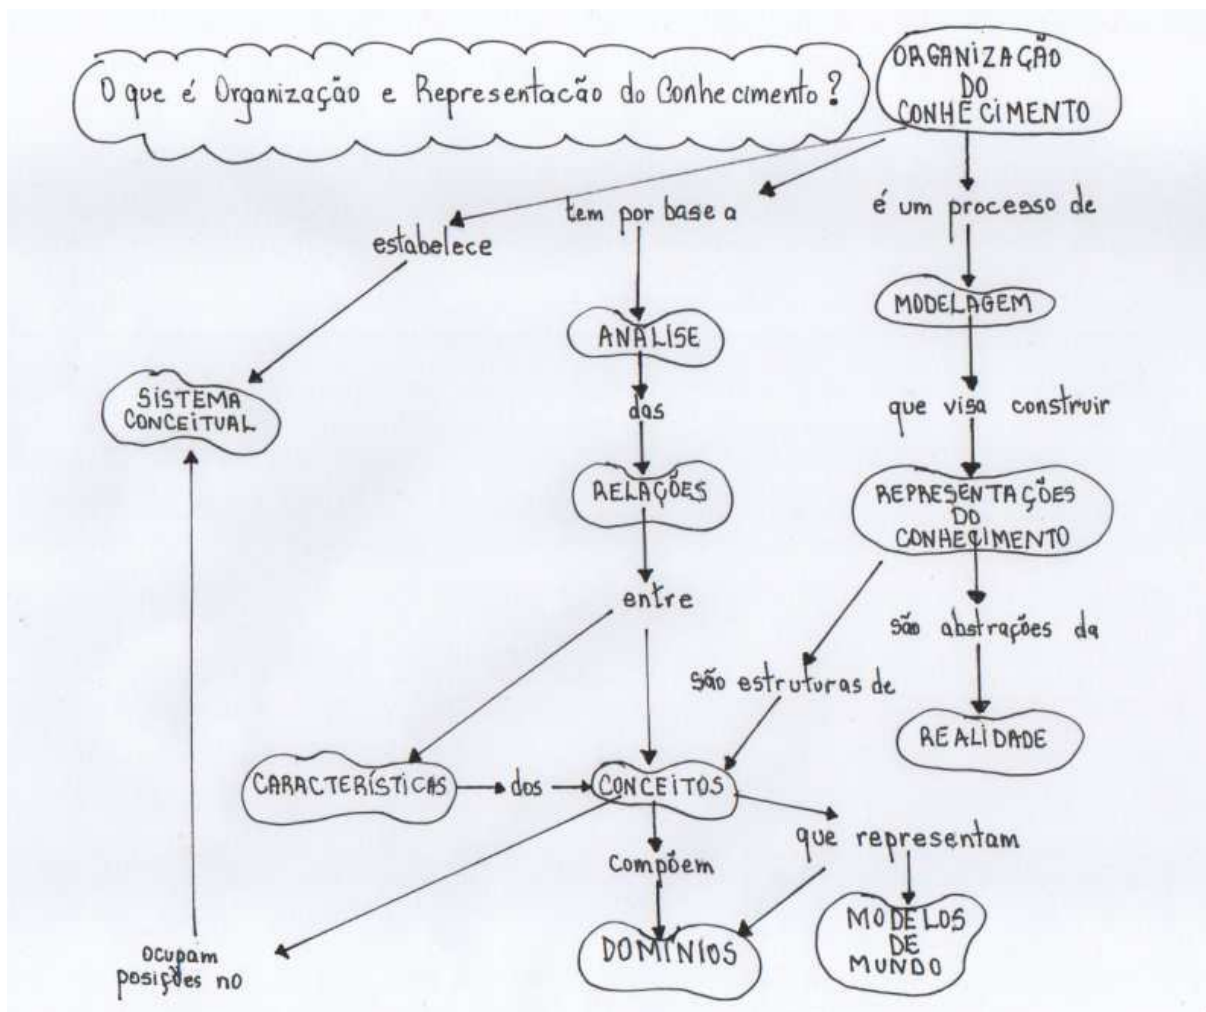 O que é Organização e Representacão do Conhecimento?
ORGANIZAÇÃO
DO
CONHECIMENTO
estabelece
tem por base a
é um processo de
SISTEMA
CONCEITUAL
ANÁLISE
MODELAGEM
das
que visa construir
RELAÇÕES
REPRESENTAÇÕES
DO
CONHECIMENTO
entre
são abstrações da
são estruturas de
REALIDADE
CARACTERÍSTICAS
dos
CONCEITOS
compõem
que representam
ocupam
posições no
DOMÍNIOS
MODELOS
DE
MUNDO